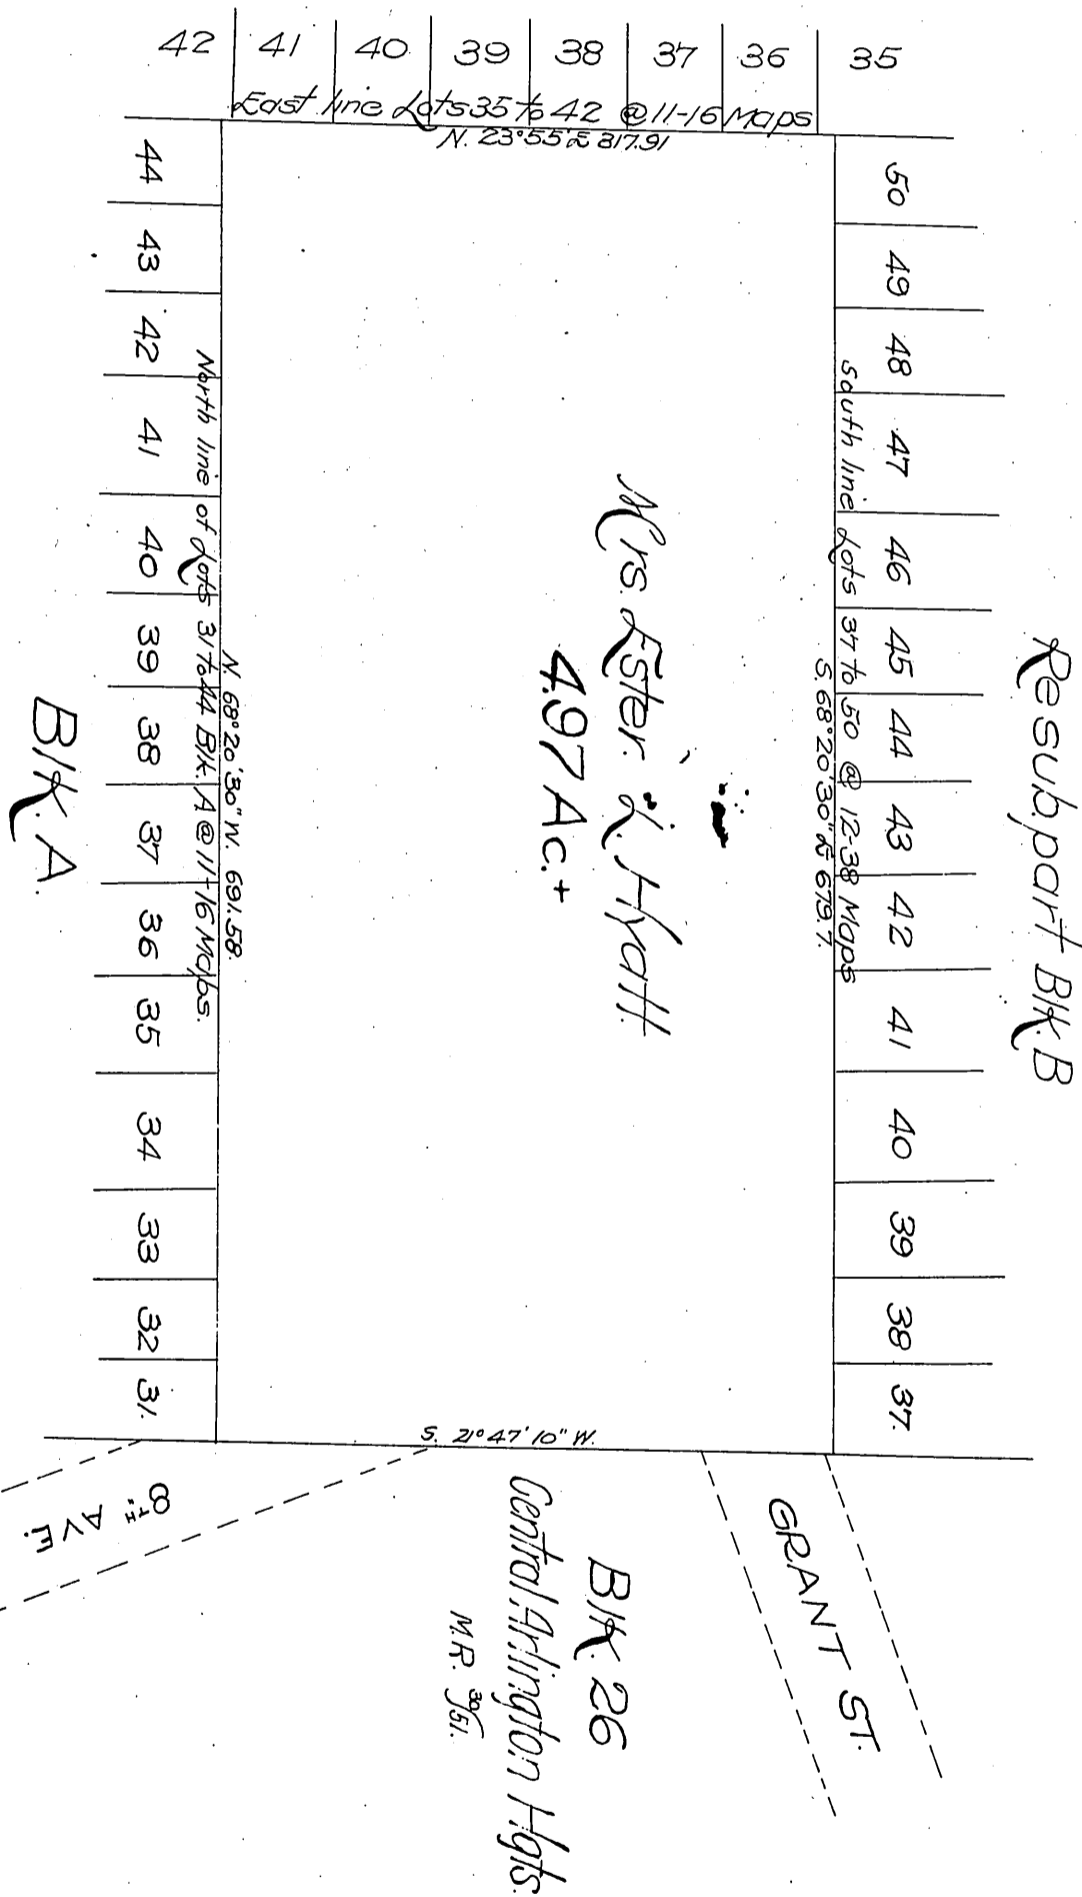 42 41 40 39 38 37 36 35
East line Lots 35 to 42 @ 11-16 Maps
N. 23°55' E 317.91
Resub. part Blk. B
50 49 48 47 46 45 44 43 42 41 40 39 38 37.
South line Lots 37 to 50 @ 12-38 Maps
S. 68°20'30" E 679.7.
Mrs. Ester L. Hyatt.
4.97 Ac.+
N. 68°20'30" W. 691.58.
North line of Lots 31 to 44 Blk. A @ 11-16 Maps.
44 43 42 41 40 39 38 37 36 35 34 33 32 31.
Blk. A.
S. 21°47'10" W.
GRANT ST.
8TH AVE.
Blk. 26
Central Arlington Hgts.
M.R. 30/51.